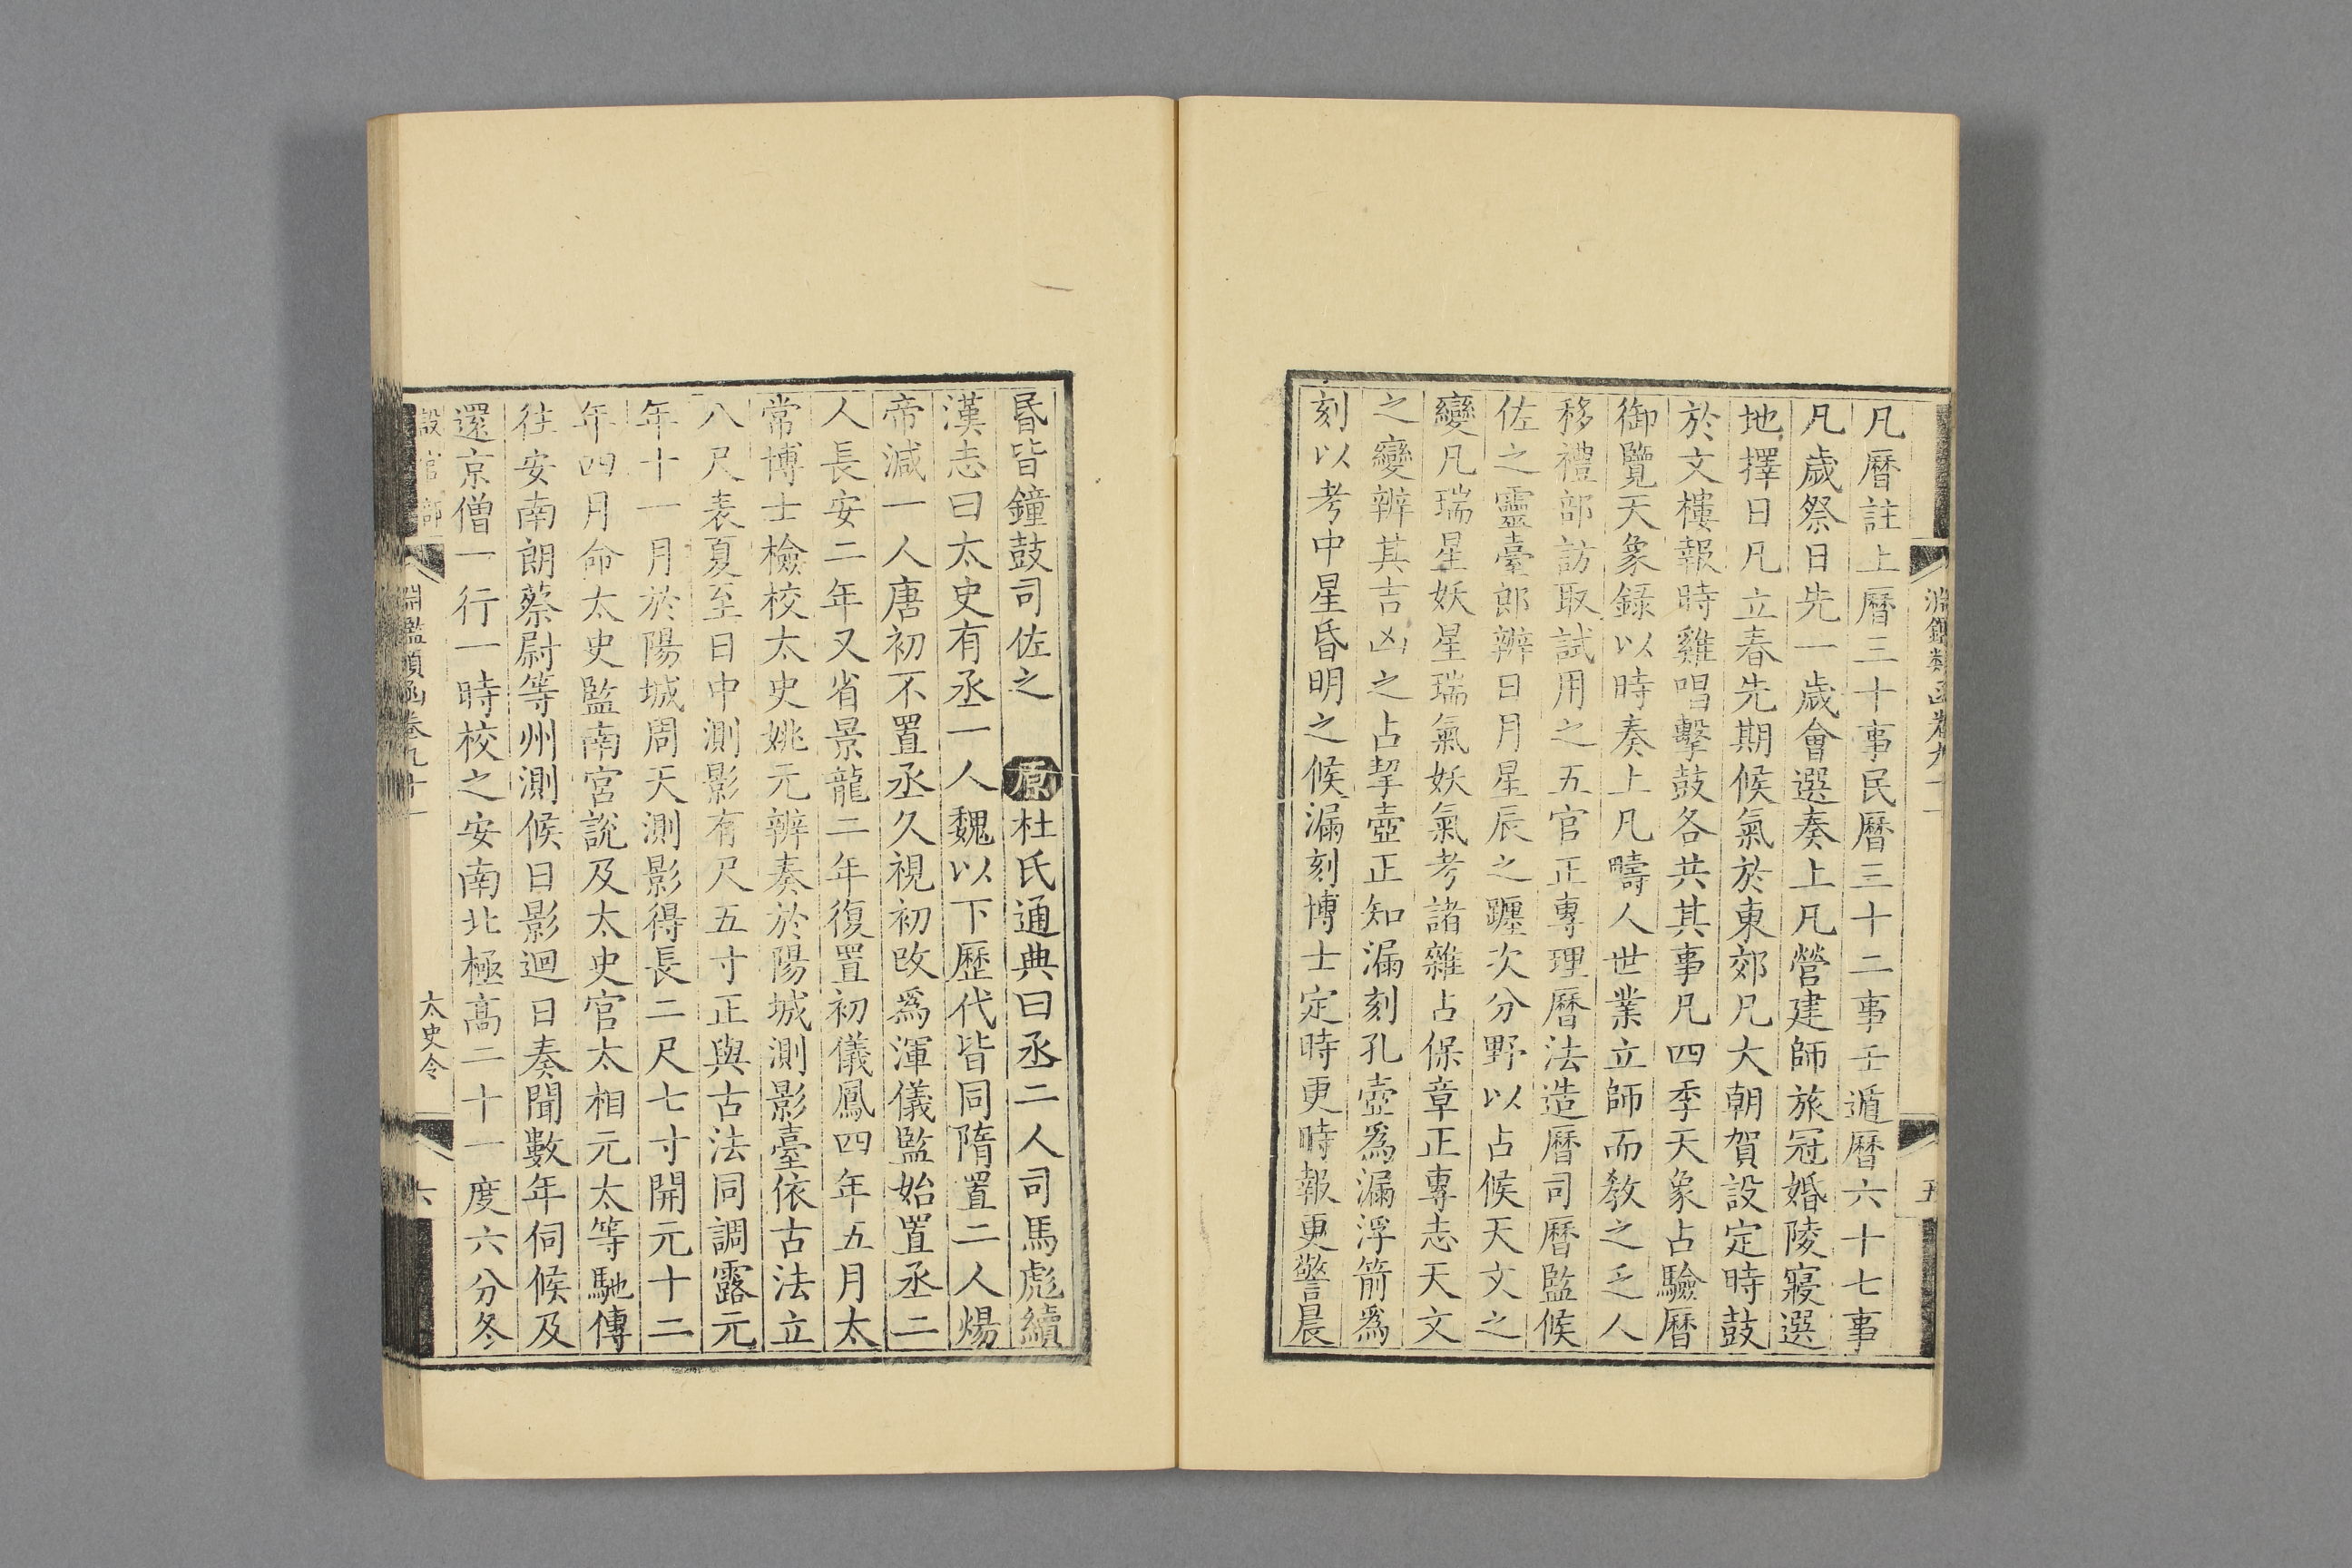 凡曆註上曆三十事民曆三十二事壬遁曆六十七事
凡歲祭日先一歲會選奏上凡營建師旅冠婚陵寢選
地擇日凡立春先期候氣於東郊凡大朝賀設定時鼓
於文樓報時雞唱擊鼓各共其事凡四季天象占驗曆
御覽天象錄以時奏上凡疇人世業立師而敎之乏人
移禮部訪取試用之五官正專理曆法造曆司曆監候
佐之靈臺郎辨日月星辰之躔次分野以占候天文之
變凡瑞星妖星瑞氣妖氣考諸雜占保章正專志天文
之變辨其吉凶之占挈壺正知漏刻孔壺爲漏浮箭爲
刻以考中星昏明之候漏刻博士定時更時報更警晨
淵鑑類函卷九十一
五
昬皆鐘鼓司佐之 原杜氏通典曰丞二人司馬彪續
漢志曰太史有丞一人魏以下歷代皆同隋置二人煬
帝減一人唐初不置丞久視初改爲渾儀監始置丞二
人長安二年又省景龍二年復置初儀鳳四年五月太
常博士檢校太史姚元辨奏於陽城測影臺依古法立
八尺表夏至日中測影有尺五寸正與古法同調露元
年十一月於陽城周天測影得長二尺七寸開元十二
年四月命太史監南宮說及太史官太相元太等馳傳
往安南朗蔡尉等州測候日影迴日奏聞數年伺候及
還京僧一行一時校之安南北極高二十一度六分冬
設官部
淵鑑類函卷九十一
太史令
六